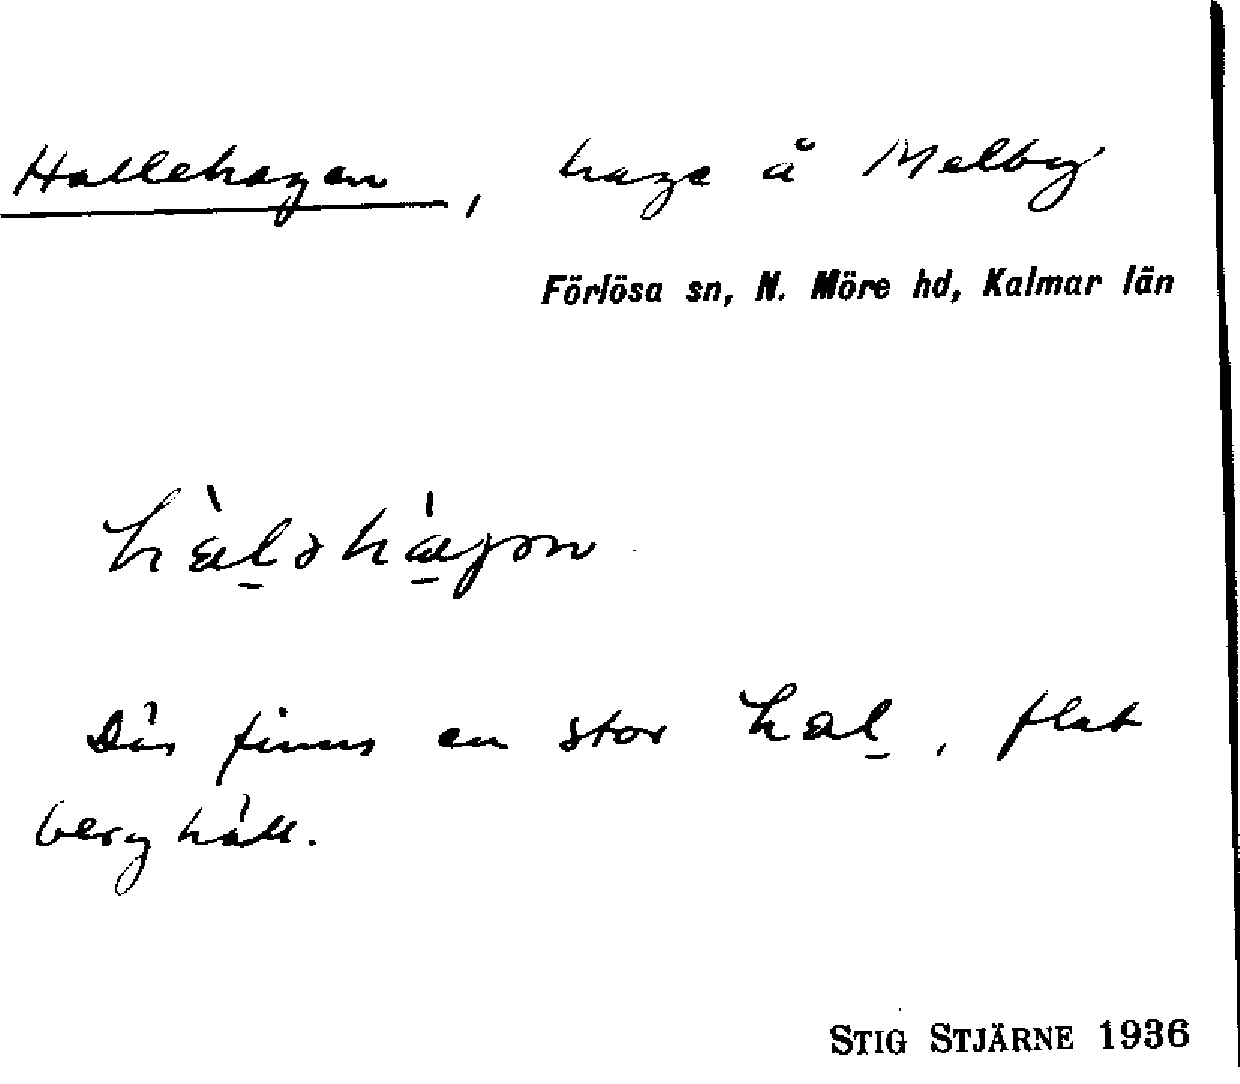 Hallehagen, hage å Melby
Förlösa sn, N. Möre hd, Kalmar län
Där finns en stor hal, flat
berghäll.
STIG STJÄRNE 1936